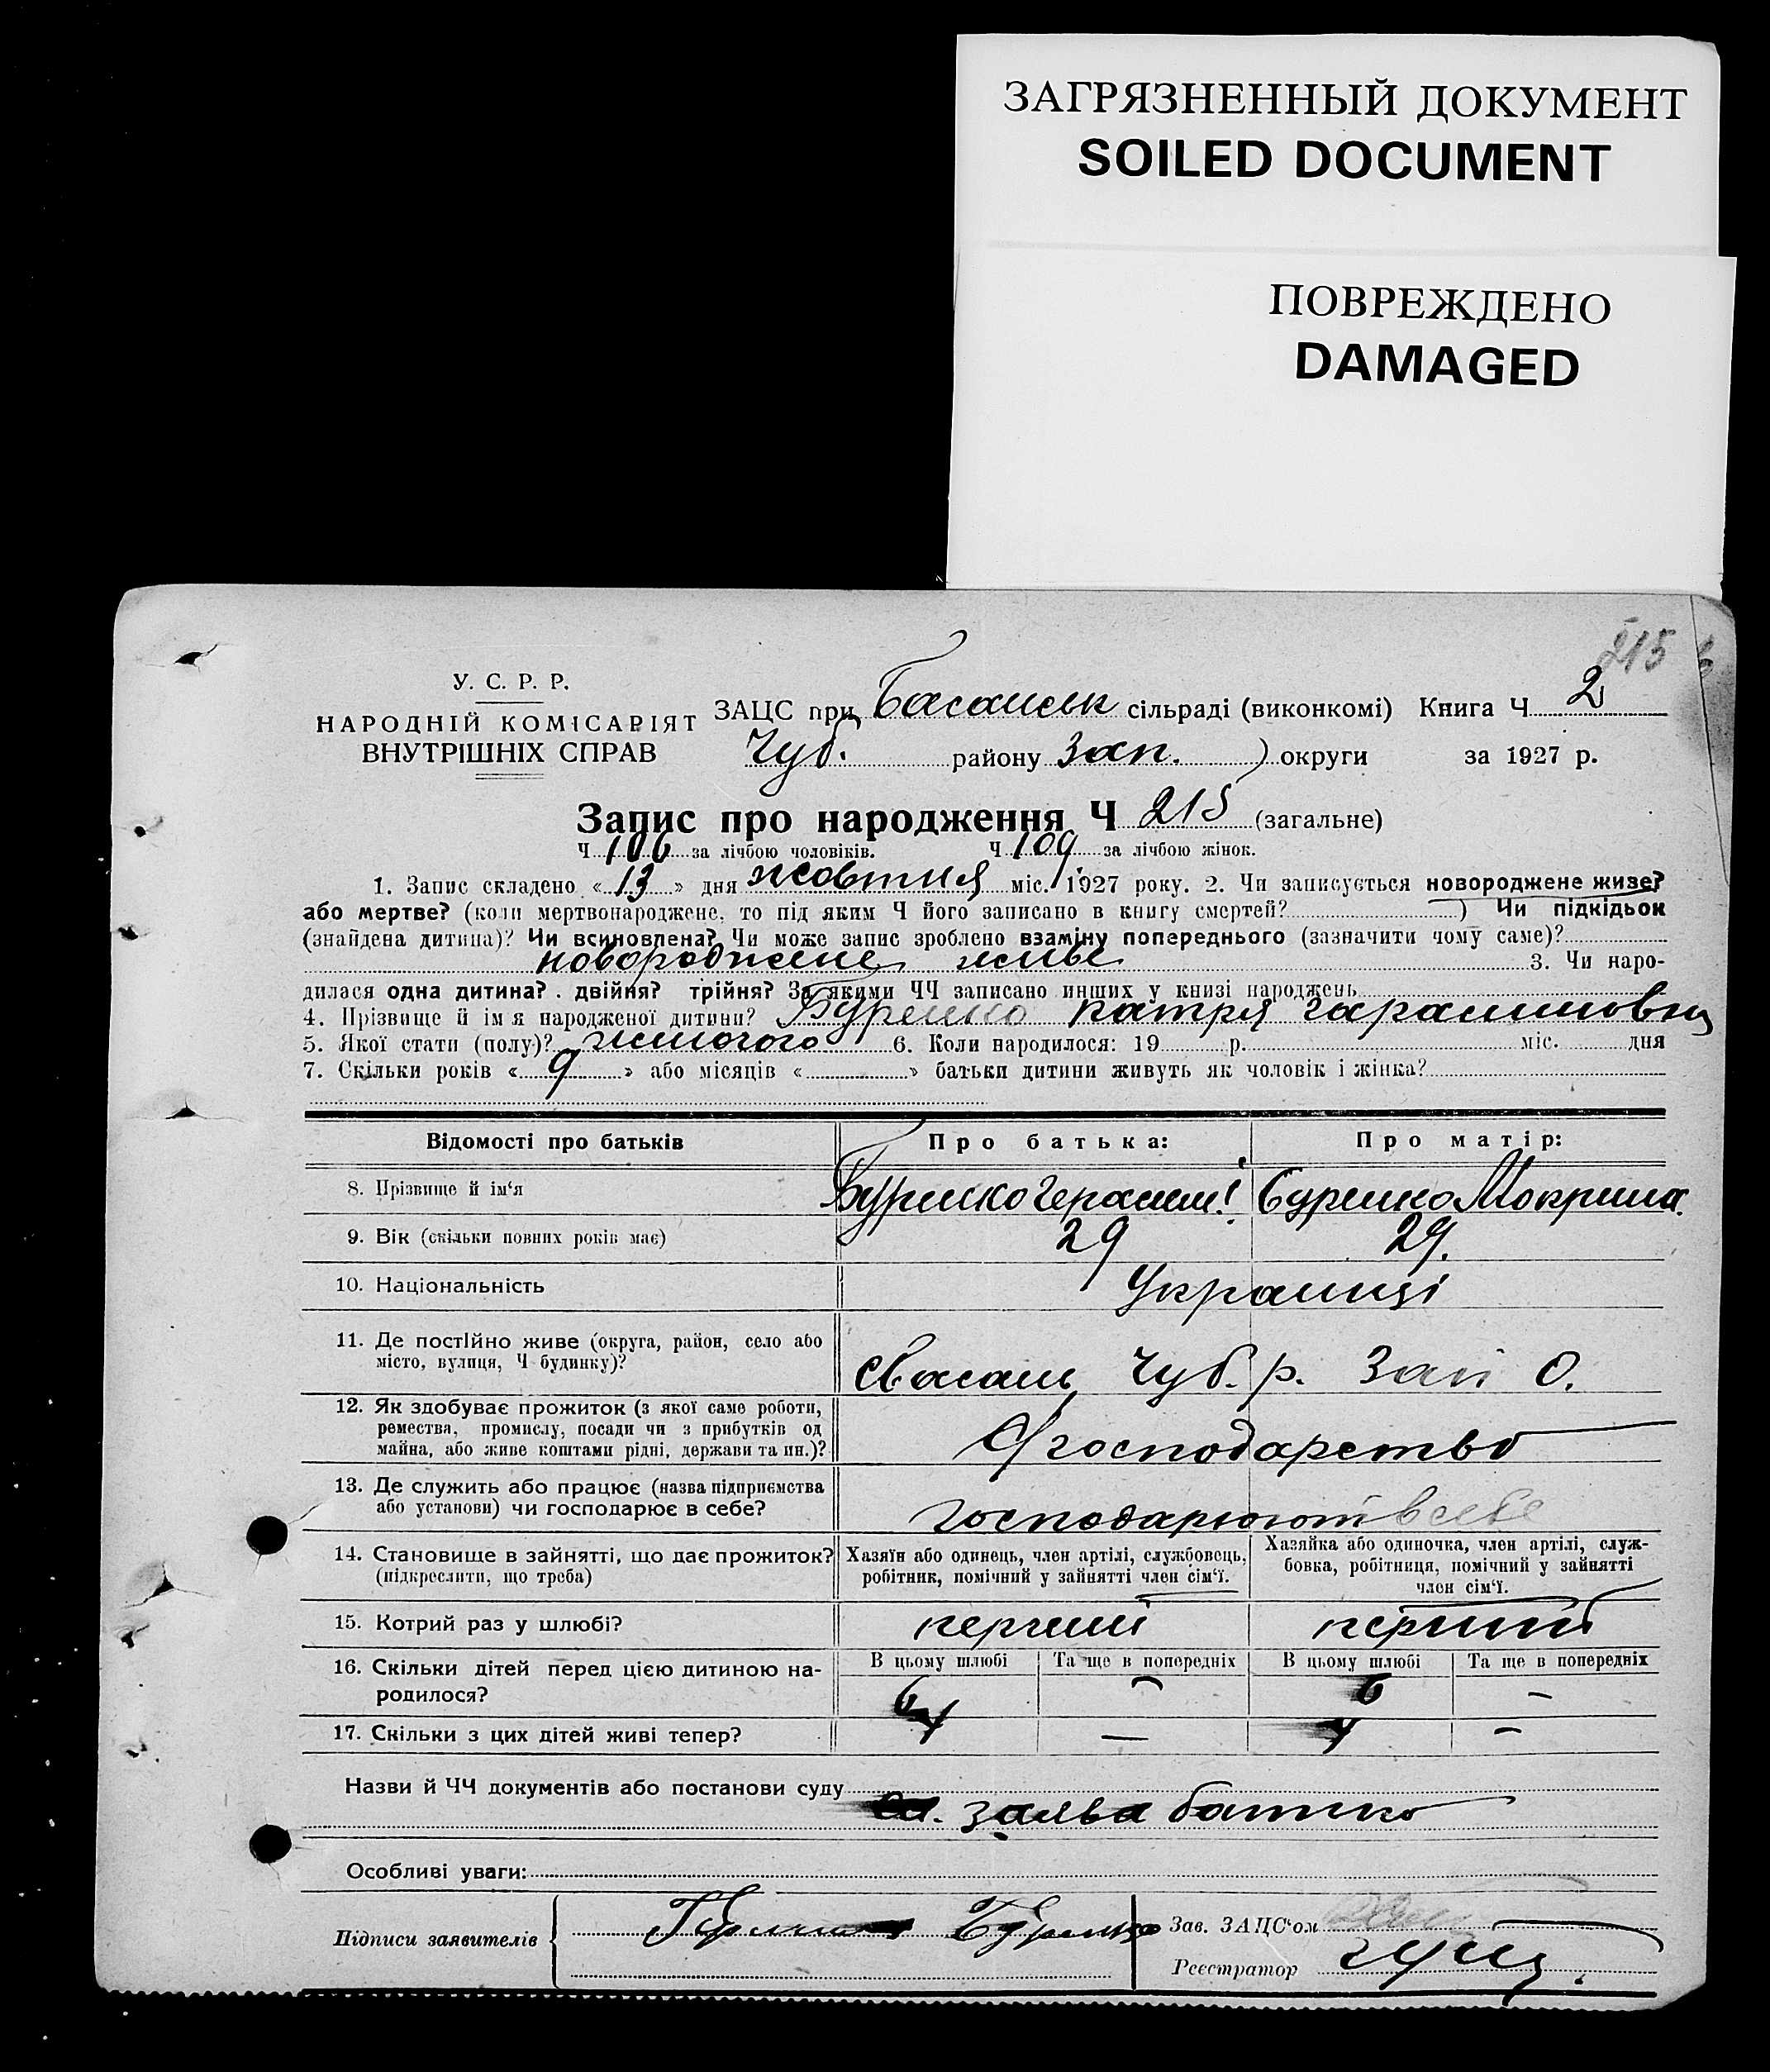 ЗАГРЯЗНЕННЫЙ ДОКУМЕНТ
SOILED DOCUMENT
ПОВРЕЖДЕНО
DAMAGED
215
У. С. Р. Р.
НАРОДНІЙ КОМІСАРІЯТ
ВНУТРІШНІХ СПРАВ
ЗАЦС при Басанськ сільраді (виконкомі) Книга Ч 2
Чуб. району Зап. округи за 1927 р.
Запис про народження Ч 215 (загальне)
Ч 106 за лічбою чоловіків. Ч 109 за лічбою жінок.
1. Запис складено « 13 » дня жовтня міс. 1927 року. 2. Чи записується новороджене живе?
або мертве? (коли мертвонароджене, то під яким Ч його записано в книгу смертей? ) Чи підкідьок
(знайдена дитина)? Чи всиновлена? Чи може запис зроблено взаміну попереднього (зазначити чому саме)?
новороджене живе 3. Чи наро-
дилася одна дитина? двійня? трійня? За якими ЧЧ записано инших у книзі народжень
4. Прізвище й ім я народженої дитини? Буренко Катря Гарасимовна
5. Якої стати (полу)? жіночого 6. Коли народилося: 19 р. міс. дня
7. Скільки років « 9 » або місяців « » батьки дитини живуть як чоловік і жінка?
Відомості про батьків Про батька: Про матір:
8. Прізвище й ім'я Буренко Герасим Буренко Мокрина
9. Вік (скільки повних років має) 29 29.
10. Національність Українці
11. Де постійно живе (округа, район, село або
місто, вулиця, Ч будинку)? с Басань Чуб. р. Зап О.
12. Як здобуває прожиток (з якої саме роботи,
ремества, промислу, посади чи з прибутків од
майна, або живе коштами рідні, держави та ин.)? господарство
13. Де служить або працює (назва підприємства
або установи) чи господарює в себе? господарюют в себе
14. Становище в зайнятті, що дає прожиток?
(підкреслити, що треба)
Хазяїн або одинець, член артілі, службовець,
робітник, помічний у зайнятті член сім'ї.
Хазяйка або одиночка, член артілі, служ-
бовка, робітниця, помічний у зайнятті
член сім'ї.
15. Котрий раз у шлюбі? перший перший
16. Скільки дітей перед цією дитиною на-
родилося?
В цьому шлюбі Та ще в попередніх В цьому шлюбі Та ще в попередніх
6 — 6 —
17. Скільки з цих дітей живі тепер? 4 — 4 —
Назви й ЧЧ документів або постанови суду
заява батька
Особливі уваги:
Підписи заявителів Буренко
Зав. ЗАЦС'ом
Реєстратор